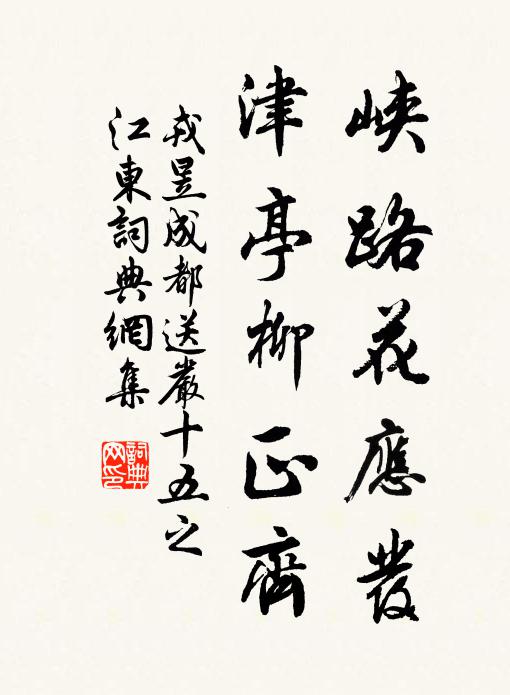 峽路花應發
津亭柳正齊
戎昱成都送嚴十五之
江東詞典網集
詞典網印